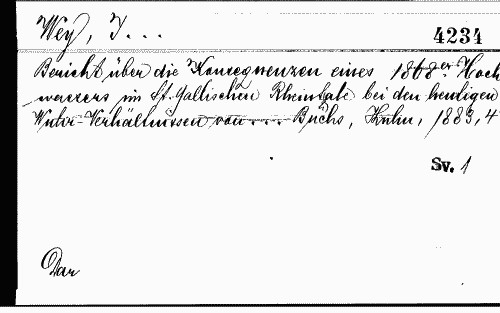 Wey, J...
4234
Bericht über die Konsequenzen eines 1868er Hoch
wassers im St. Gallischen Rheinthale bei den heutigen
Wuhr-Verhältnissen von .... Buchs, Kuhn, 1883, 4
Sv. 1
Dar